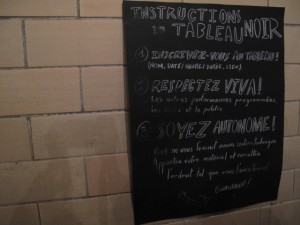 INSTRUCTIONS
TABLEAU NOIR
1 INSCRIVEZ-VOUS AU TABLEAU!
(NOM, DATE, HEURE, DURÉE, LIEU)
2 RESPECTEZ VIVA!
Les autres performances programmées,
et le public
3 SOYEZ AUTONOME!
Viva ne vous fournit aucun
Apportez votre matériel et remettez
l'endroit tel que vous l'avez trouvé